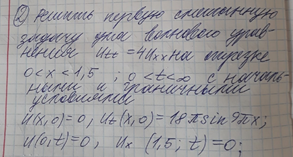 ② Решить первую смешанную
задачу для волнового урав-
нения Utt = 4Uxx на отрезке
0<x<1,5 ; 0<t<∞ с началь-
ными и граничными
условиями
U(x,0)=0, Ut(x,0)=18πsin9πx;
U(0,t)=0, Ux(1,5,t)=0;